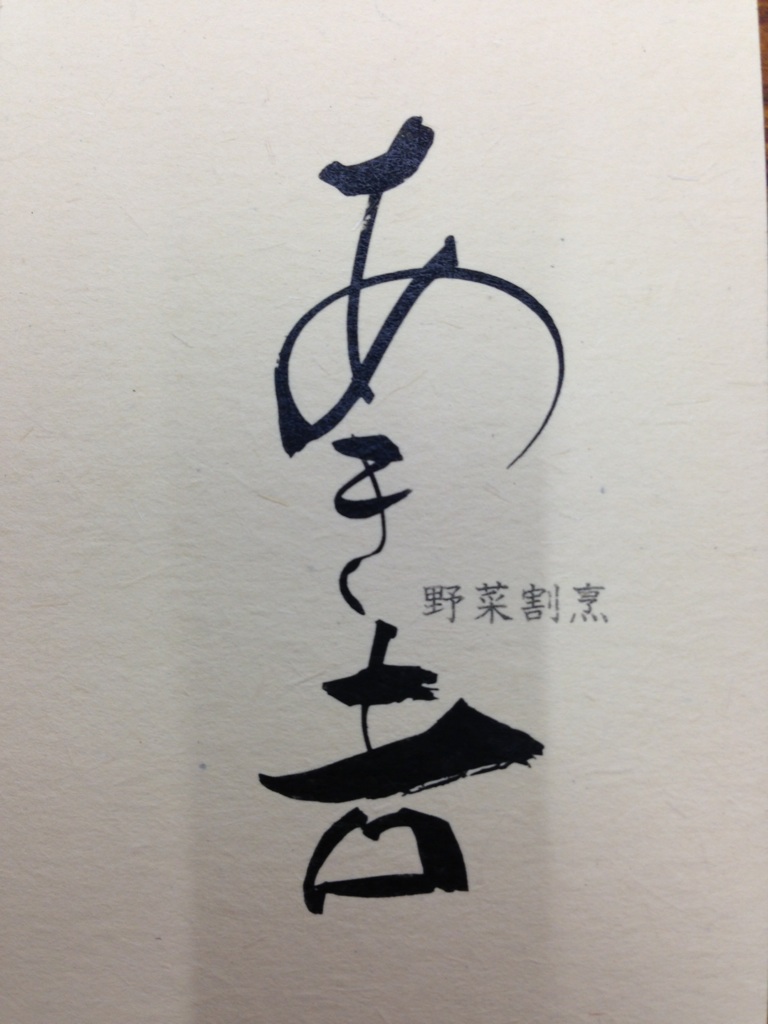 あき吉
野菜割烹